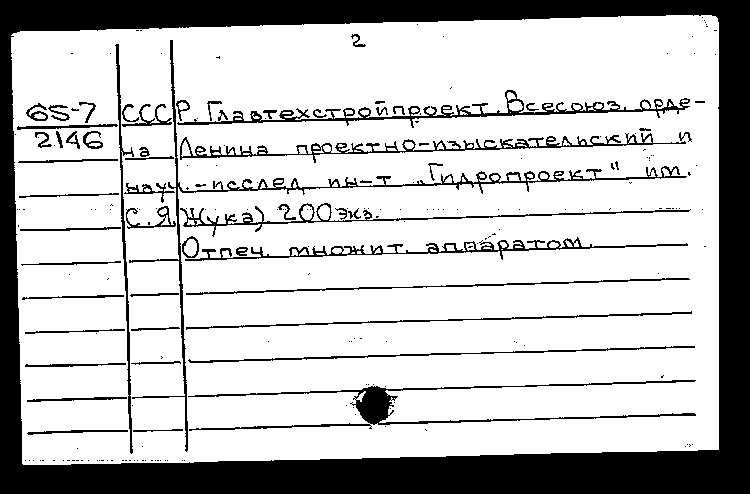 2
65-7 СССР. Главтехстройпроект. Всесоюз. орде-
2146 на Ленина проектно-изыскательский и
науч.-исслед. ин-т "Гидропроект" им.
С.Я.Жука) 200 экз.
Отпеч. множит. аппаратом.